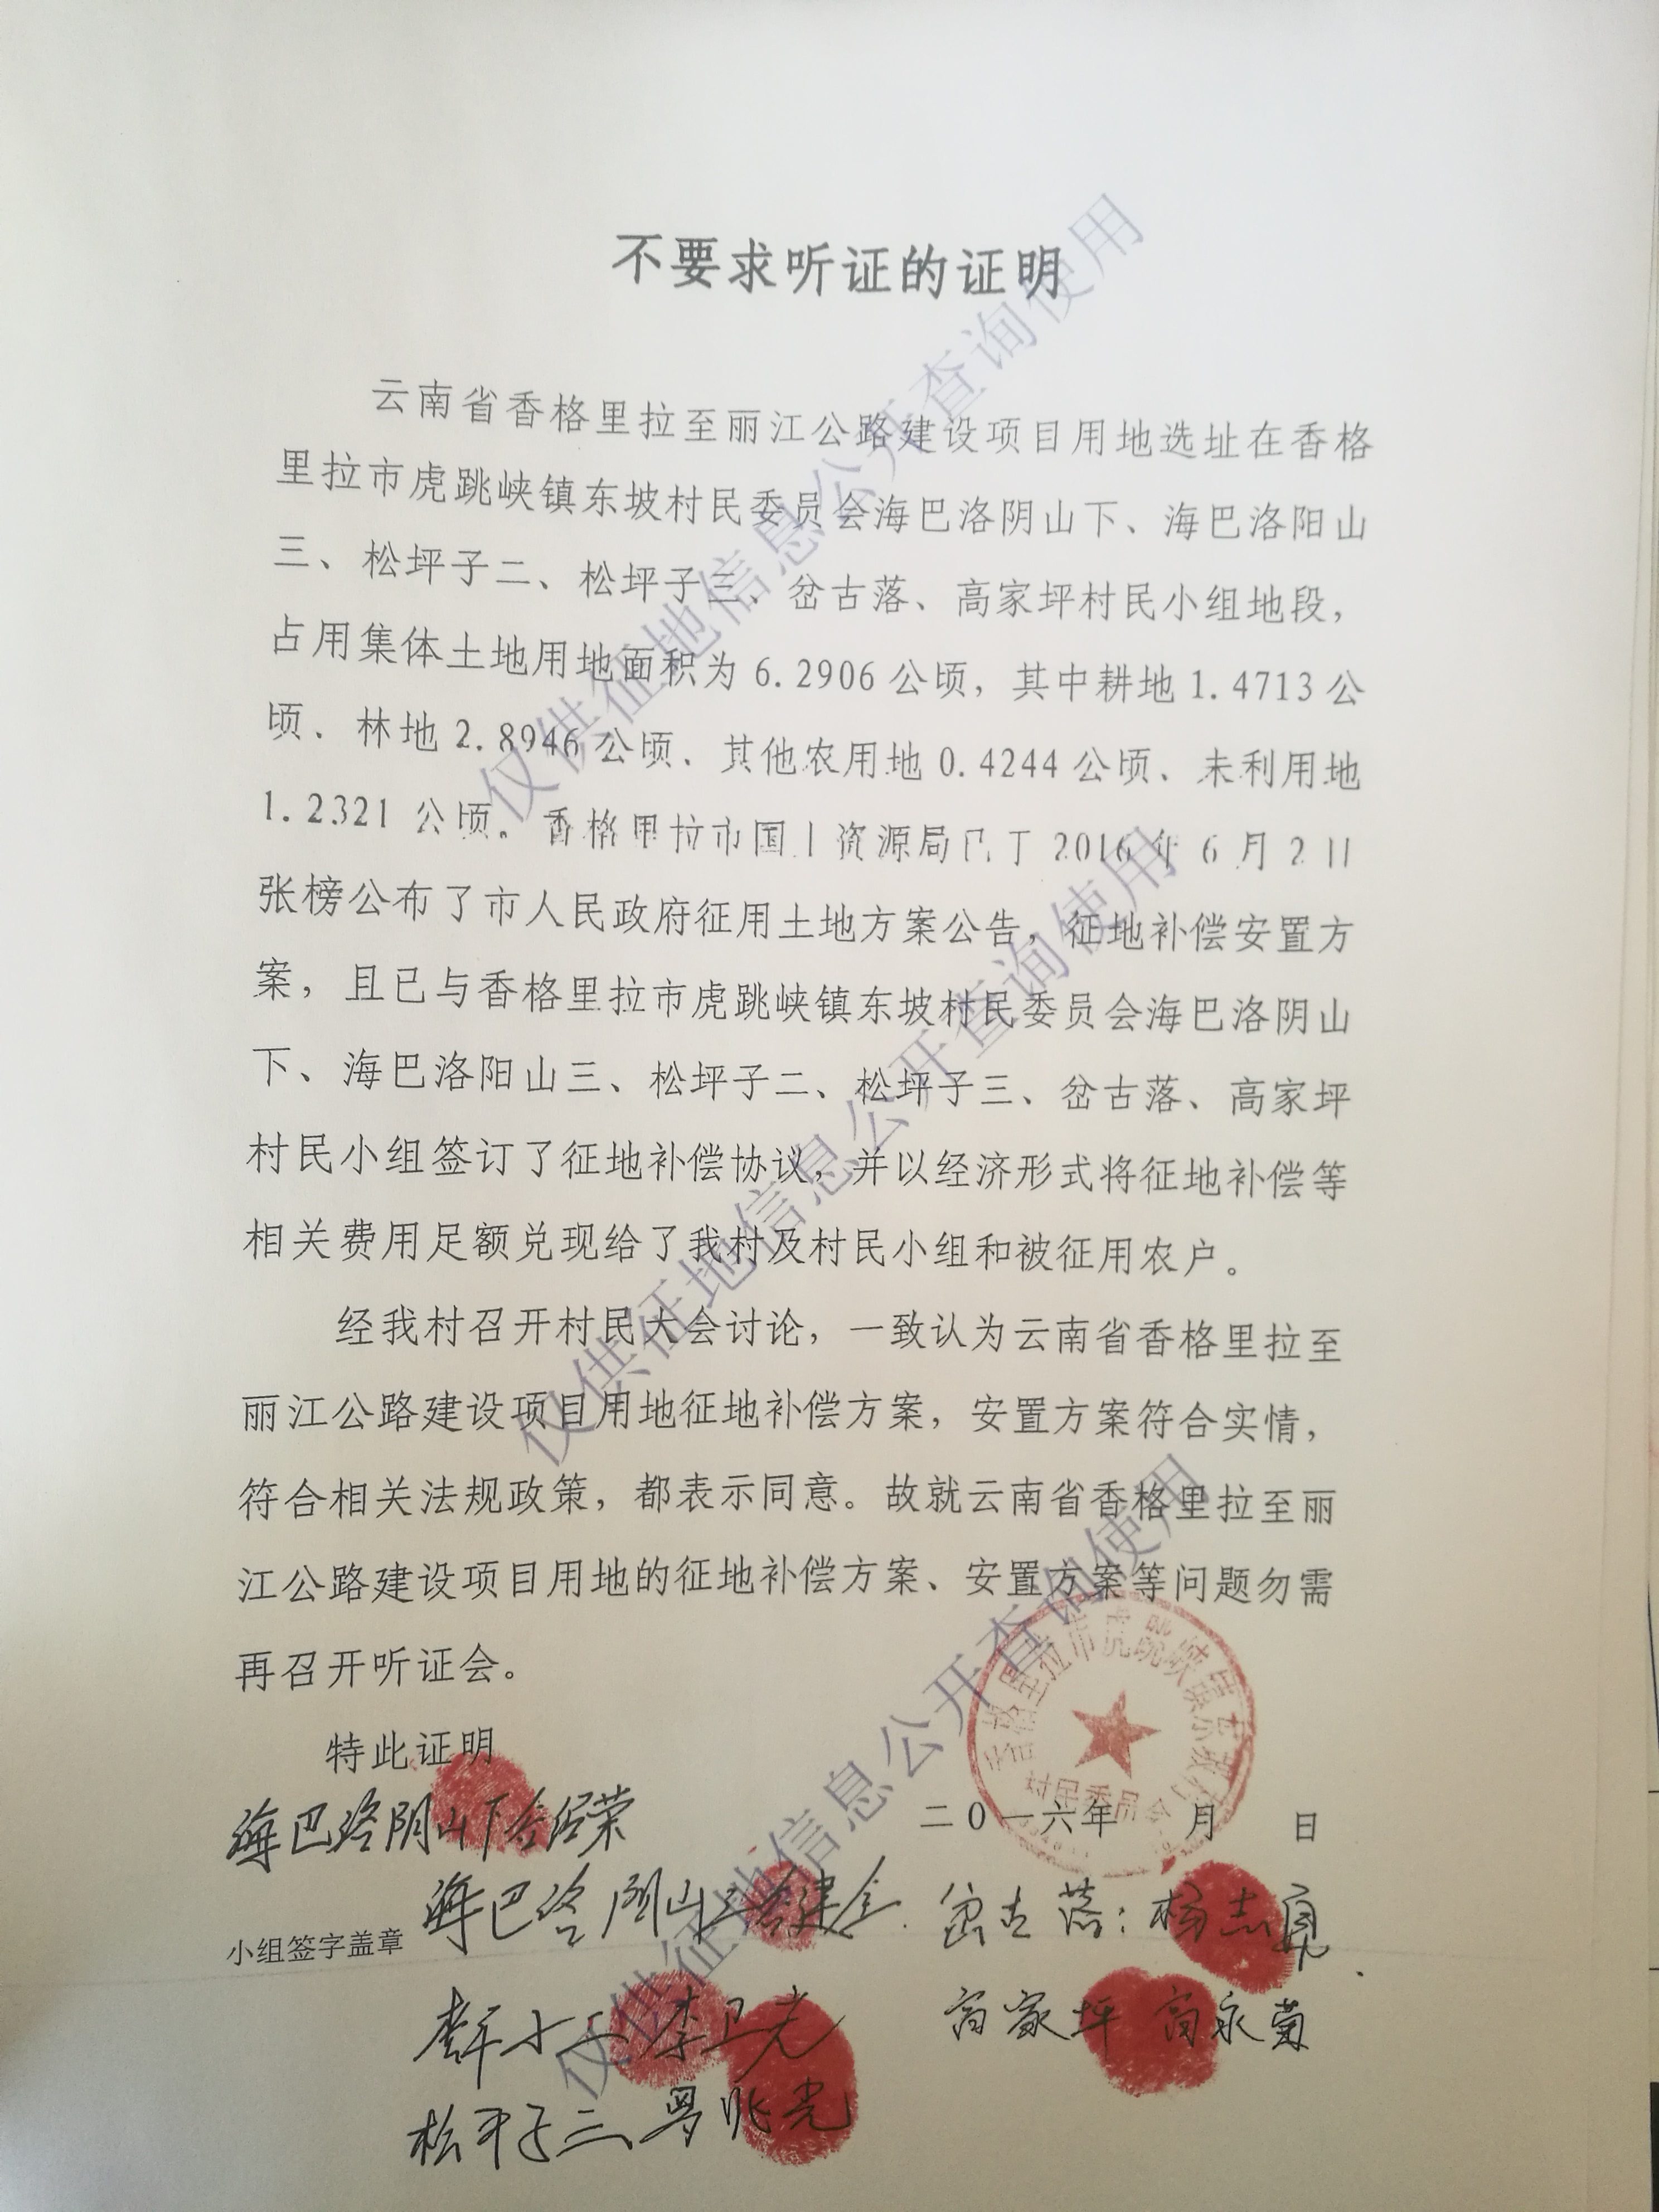 不要求听证的证明
云南省香格里拉至丽江公路建设项目用地选址在香格
里拉市虎跳峡镇东坡村民委员会海巴洛阴山下、海巴洛阳山
三、松坪子二、松坪子三、岔古落、高家坪村民小组地段，
占用集体土地用地面积为6.2906公顷，其中耕地1.4713公
顷、林地2.8946公顷、其他农用地0.4244公顷、未利用地
1.2321公顷。香格里拉市国土资源局已于2016年6月2日
张榜公布了市人民政府征用土地方案公告，征地补偿安置方
案，且已与香格里拉市虎跳峡镇东坡村民委员会海巴洛阴山
下、海巴洛阳山三、松坪子二、松坪子三、岔古落、高家坪
村民小组签订了征地补偿协议，并以经济形式将征地补偿等
相关费用足额兑现给了我村及村民小组和被征用农户。
经我村召开村民大会讨论，一致认为云南省香格里拉至
丽江公路建设项目用地征地补偿方案，安置方案符合实情，
符合相关法规政策，都表示同意。故就云南省香格里拉至丽
江公路建设项目用地的征地补偿方案、安置方案等问题勿需
再召开听证会。
特此证明
香格里拉市虎跳峡镇东坡村
村民委员会
二0一六年 月 日
海巴洛阴山下
海巴洛阳山三
岔古落：杨志
小组签字盖章
李卫光
高家坪 高永菊
松平子三 兆光
仅供征地信息公开查询使用
仅供征地信息公开查询使用
仅供征地信息公开查询使用